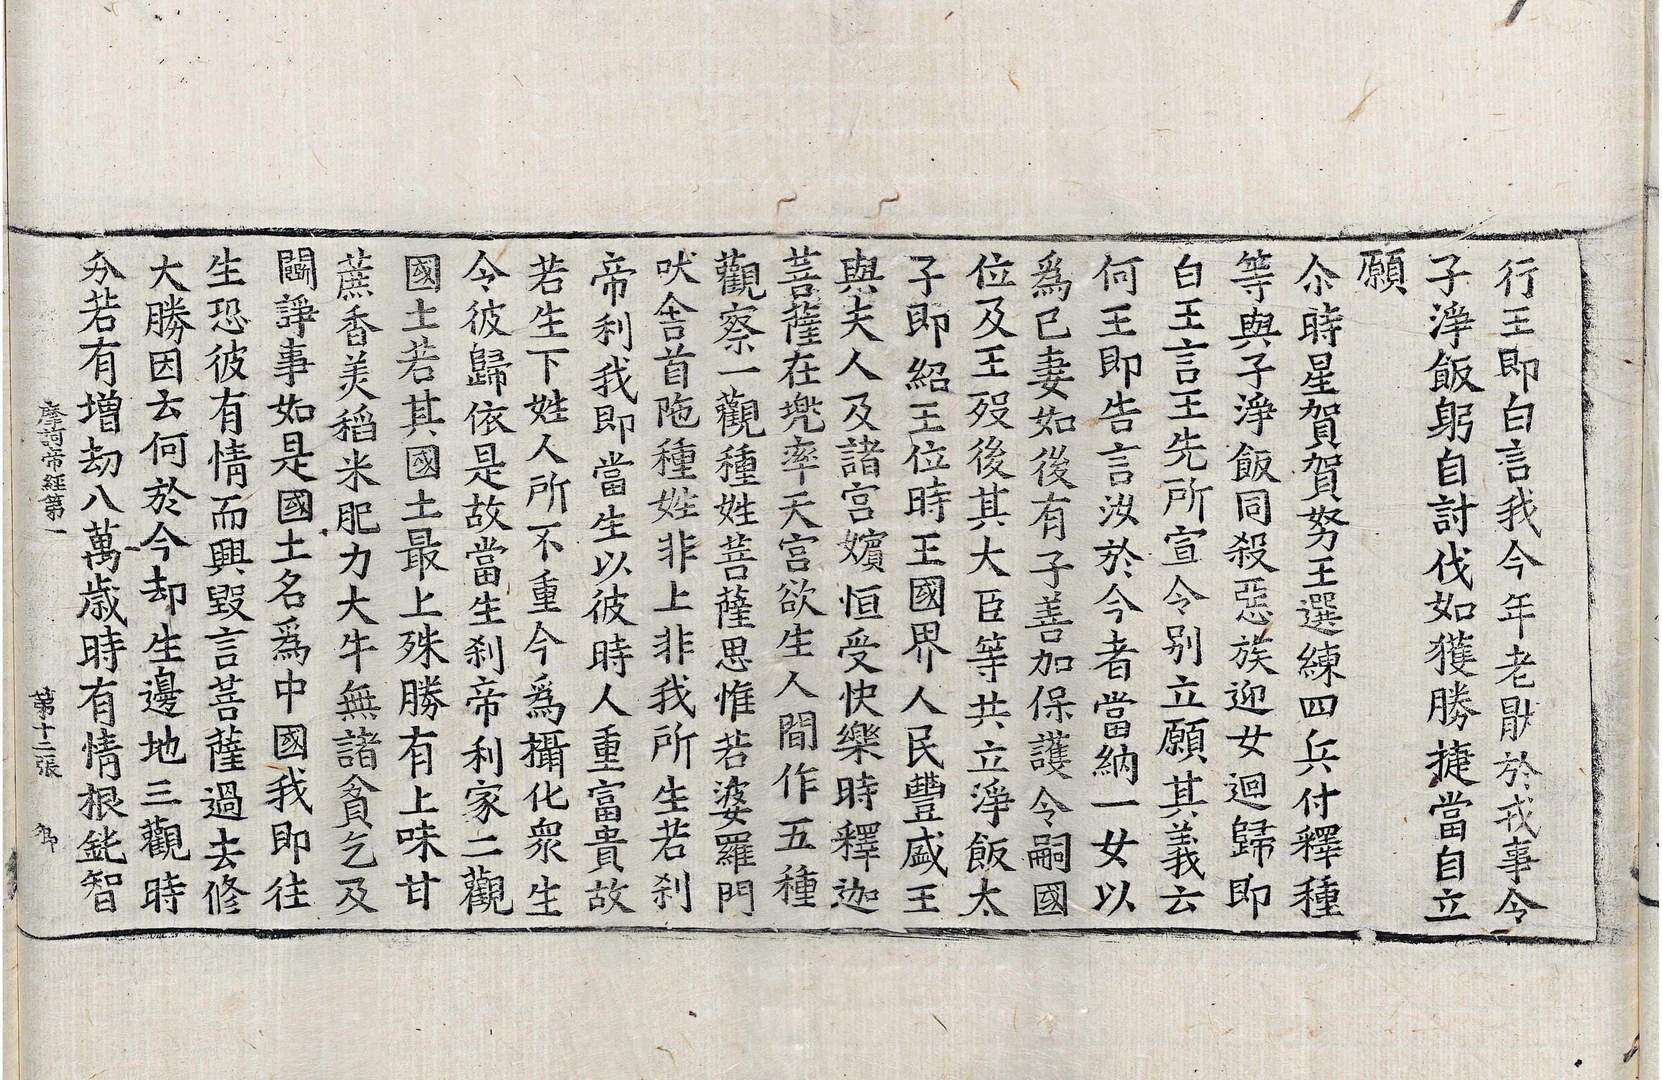 行王即白言我今年老猒於戎事令
子淨飯躬自討伐如獲勝捷當自立
願
尒時星賀賀努王選練四兵付釋種
等與子淨飯同殺惡族迎女迴歸即
白王言王先所宣令別立願其義云
何王即告言汝於今者當納一女以
爲己妻如後有子善加保護令嗣國
位及王歿後其大臣等共立淨飯太
子即紹王位時王國界人民豐盛王
與夫人及諸宮嬪恒受快樂時釋迦
菩薩在兠率天宮欲生人間作五種
觀察一觀種姓菩薩思惟若婆羅門
吠舍首陁種姓非上非我所生若刹
帝利我即當生以彼時人重富貴故
若生下姓人所不重今爲攝化衆生
令彼歸依是故當生刹帝利家二觀
國土若其國土最上殊勝有上味甘
蔗香美稻米肥力大牛無諸貧乞及
鬪諍事如是國土名爲中國我即往
生恐彼有情而興毀言菩薩過去修
大勝因云何於今却生邊地三觀時
分若有增劫八萬歲時有情根鈍智
摩訶帝經第一
第十二張